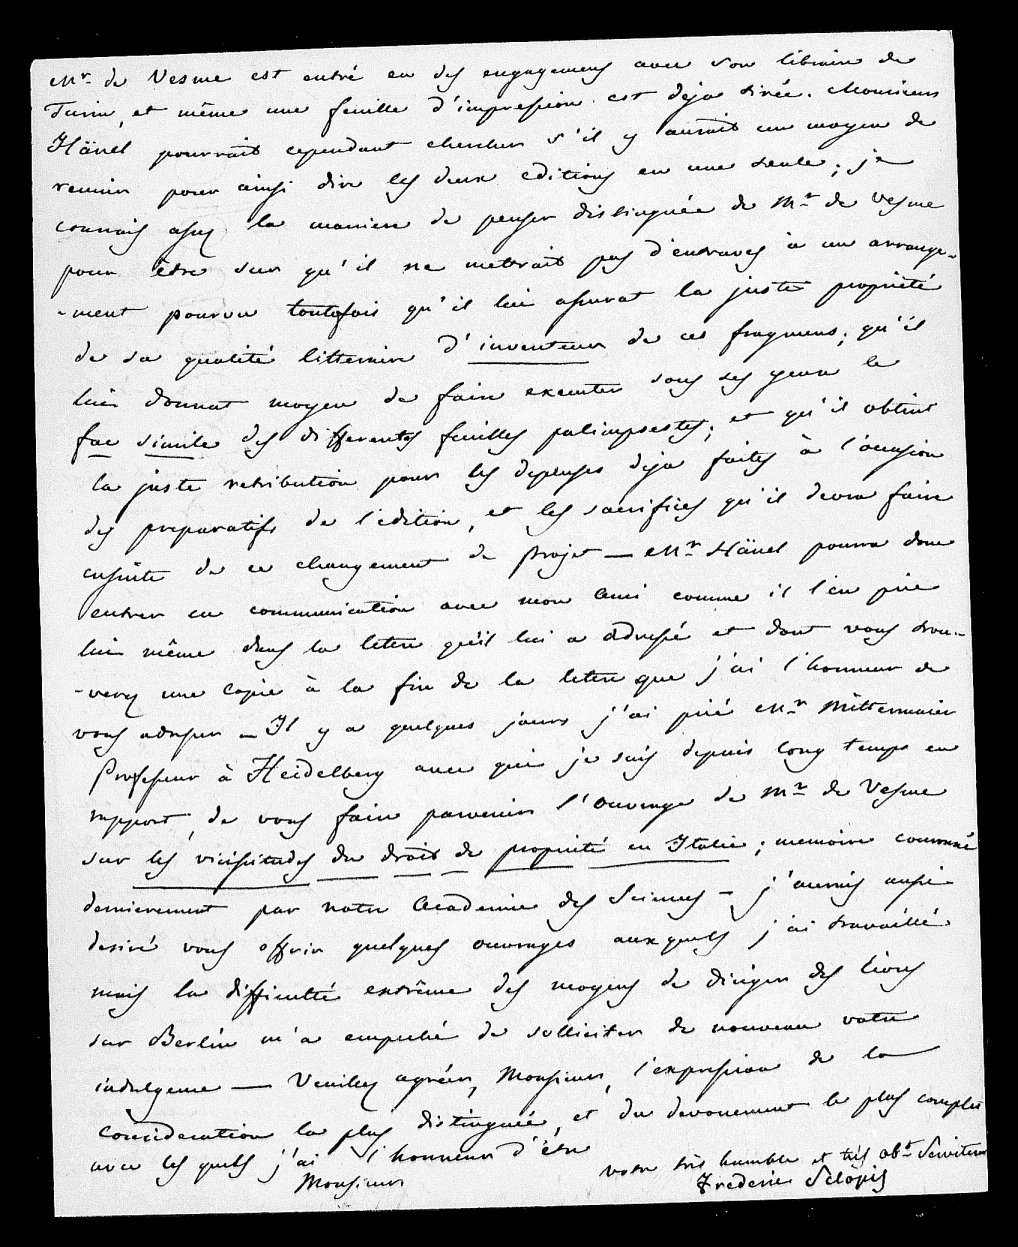 Mr. de Vesme est entré en des engagemens avec son libraire de
Turin, et même une feuille d'impression est deja tirée. Monsieur
Hänel pourrait cependant chercher s'il y aurait un moyen de
reunir pour ainsi dire les deux editions en une seule; je
connais assez la maniere de penser distinguée de Mr. de Vesme
pour être sur qu'il ne mettrait pas d'entraves à un arrange-
-ment pourvu toutefois qu'il lui assurat la juste propriété
de sa qualité litteraire d'inventeur de ces fragmens; qu'il
lui donnat moyen de faire executer sous ses yeux le
fac simile des differentes feuilles palimpsestes; et qu'il obtint
la juste retribution pour les depenses deja faites à l'occasion
des preparatifs de l'edition, et les sacrifices qu'il devra faire
ensuite de ce changement de projet — Mr. Hänel pourra donc
entrer en communication avec mon ami comme il l'en prie
lui même dans la lettre qu'il lui a adressé et dont vous trou-
-verez une copie à la fin de la lettre que j'ai l'honneur de
vous adresser — Il y a quelques jours j'ai prié Mr. Mittermaier
Professeur à Heidelberg avec qui je suis depuis long temps en
rapport, de vous faire parvenir l'ouvrage de Mr. de Vesme
sur les vicissitudes du droit de propriété en Italie; memoire couronné
dernierement par notre Academie des Sciences — j'aurais aussi
desiré vous offrir quelques ouvrages auxquels j'ai travaillé
mais la difficulté extrême des moyens de diriger des livres
sur Berlin m'a empeché de solliciter de nouveau votre
indulgence — Veuillez agréer, Monsieur, l'expression de la
consideration la plus distinguée, et du devouement le plus complet
avec les quels j'ai l'honneur d'être
Monsieur
votre très humble et très obt. Serviteur
Frederic Sclopis